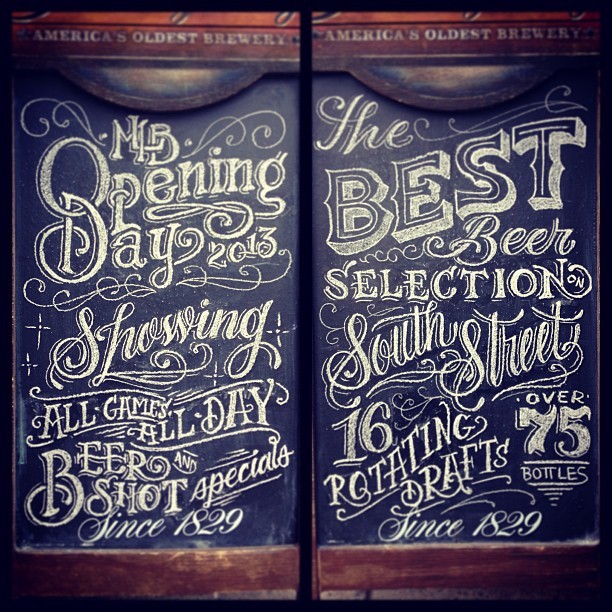 AMERICA'S OLDEST BREWERY
MLB
Opening
Day 2013
Showing
ALL·GAMES
ALL·DAY
BEER AND
SHOT specials
Since 1829
AMERICA'S OLDEST BREWERY
The
BEST
Beer
SELECTION ON
South Street
16
ROTATING
DRAFTS
OVER
75
BOTTLES
Since 1829